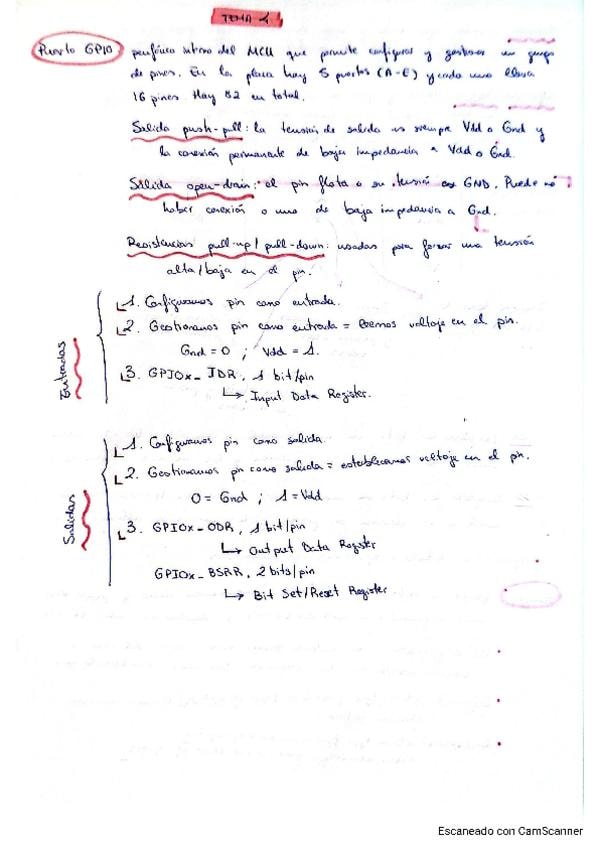 TEMA 1
Puerto GPIO periférico interno del MCU que permite configurar y gestionar un grupo
de pines. En la placa hay 5 puertos (A-E) y cada uno lleva
16 pines Hay 82 en total.
Salida push-pull: la tensión de salida es siempre Vdd o Gnd y
la conexión permanente de baja impedancia a Vdd o Gnd.
Salida open-drain: el pin flota o su tensión es GND. Puede no
haber conexión o una de baja impedancia a Gnd.
Resistencias pull-up/pull-down: usadas para forzar una tensión
alta/baja en el pin.
Entradas
1. Configuramos pin como entrada.
2. Gestionamos pin como entrada = leemos voltaje en el pin.
Gnd = 0 ; Vdd = 1.
3. GPIOx_IDR, 1 bit/pin
↳ Input Data Register.
Salidas
1. Configuramos pin como salida.
2. Gestionamos pin como salida = establecemos voltaje en el pin.
0 = Gnd ; 1 = Vdd
3. GPIOx_ODR, 1 bit/pin
↳ Output Data Register
GPIOx_BSRR, 2 bits/pin
↳ Bit Set/Reset Register
Escaneado con CamScanner